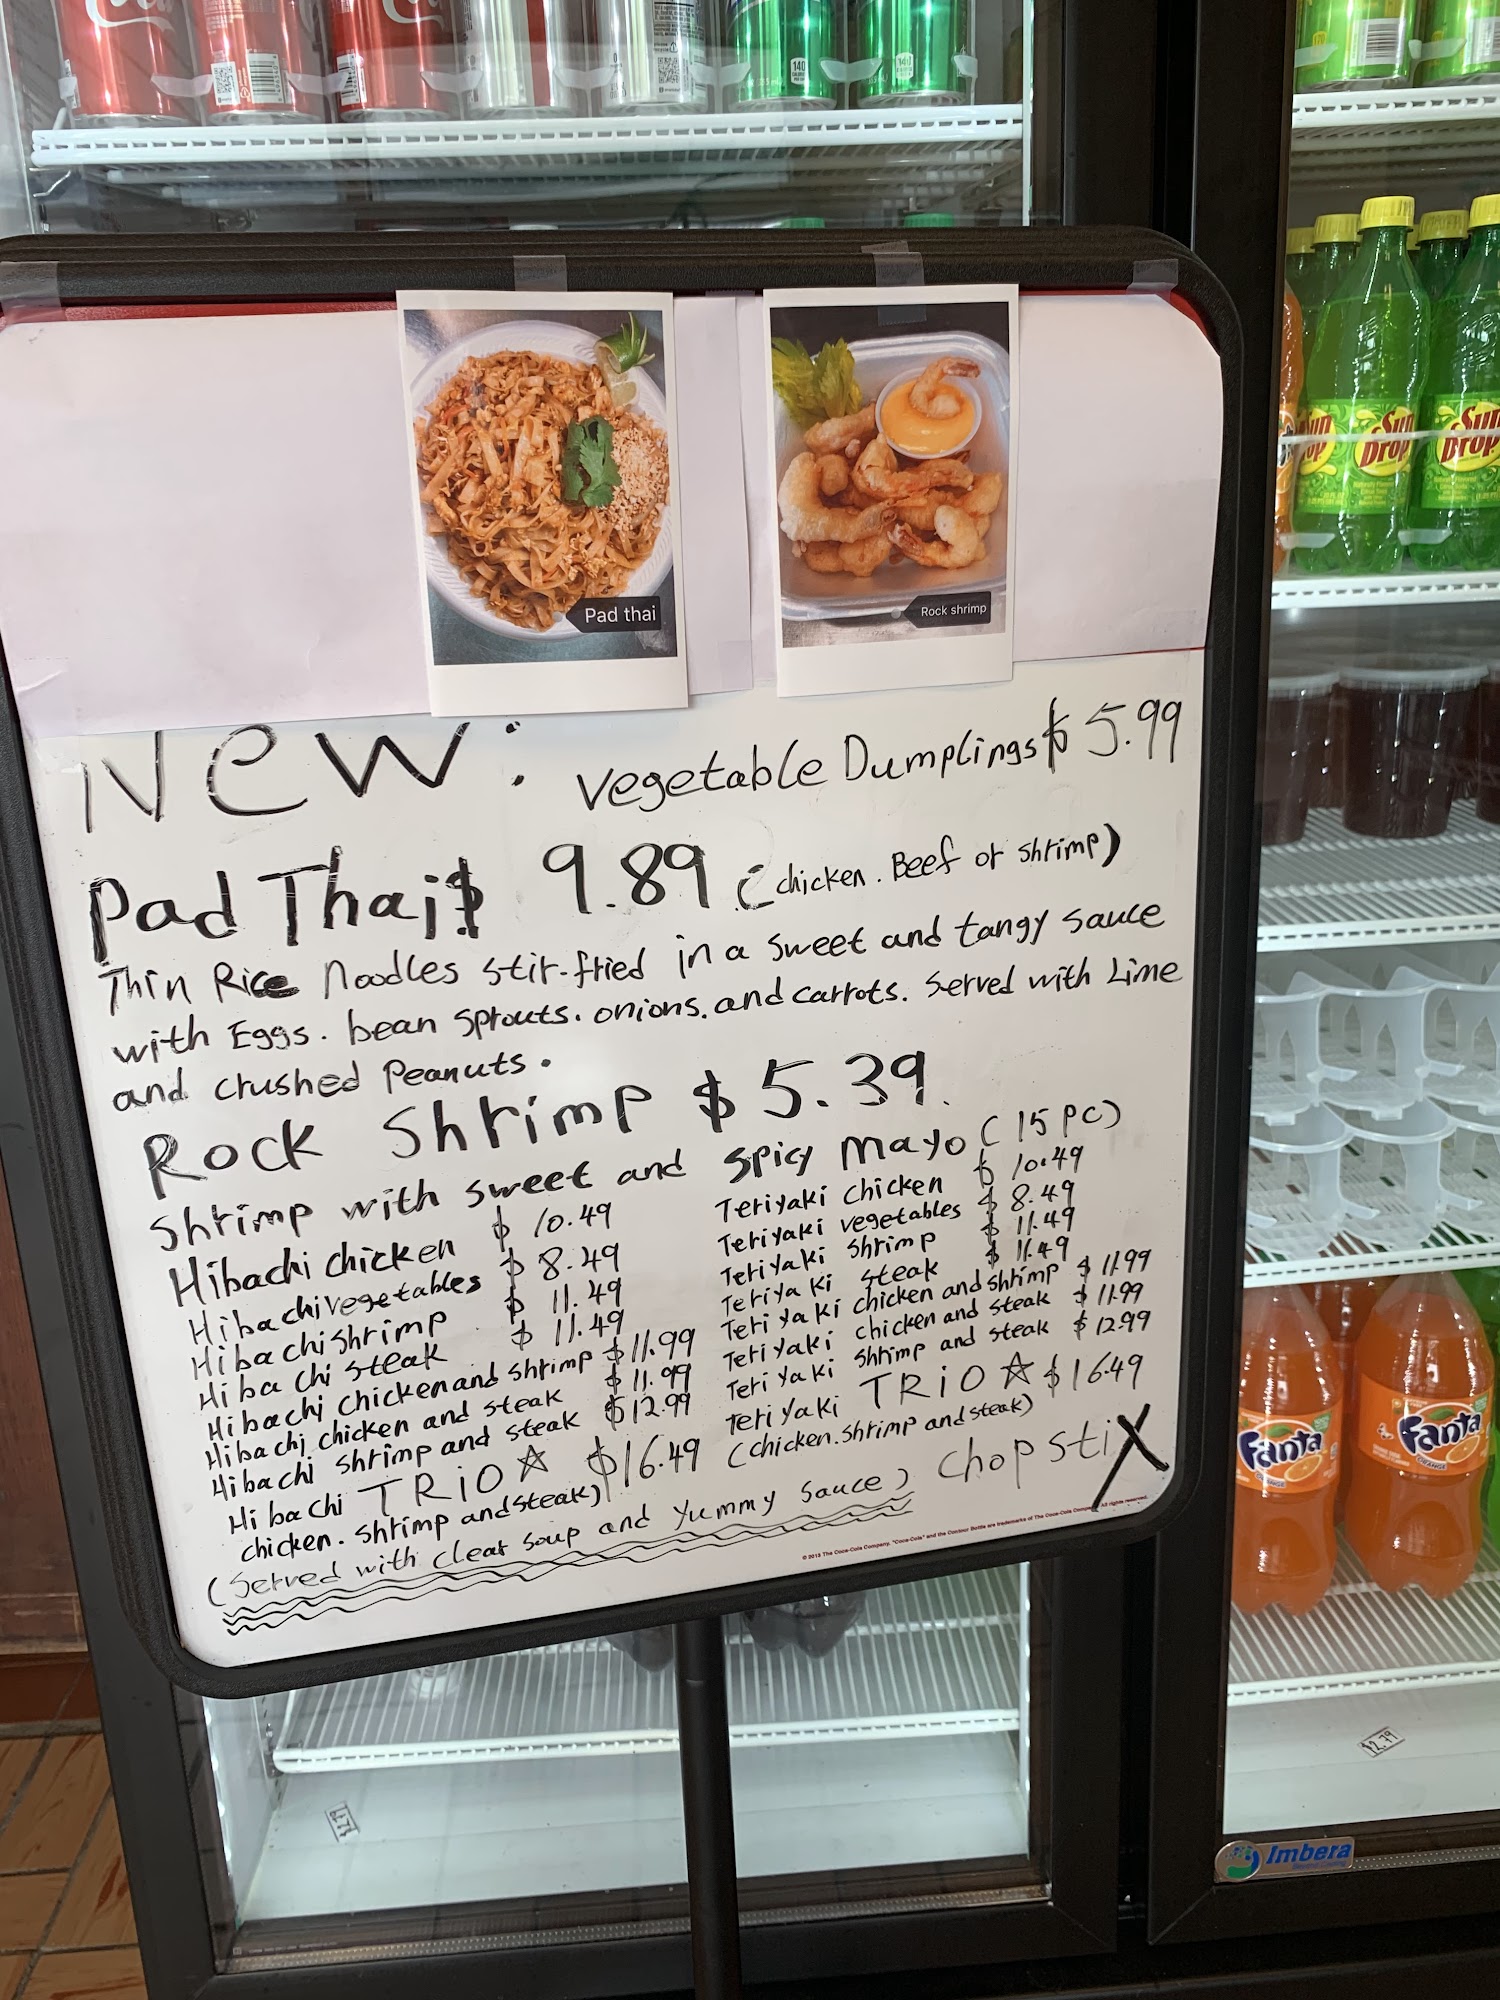 140
140
Pad thai
Rock shrimp
Sun Drop
Sun Drop
New:
vegetable Dumplings $ 5.99
Pad Thai $ 9.89 (chicken. Beef or shrimp)
Thin Rice Noodles stir-fried in a sweet and tangy sauce
with Eggs. bean sprouts. onions. and carrots. Served with Lime
and crushed Peanuts.
Rock Shrimp $ 5.39
Shrimp with sweet and spicy mayo (15 PC)
Hibachi chicken $ 10.49
Hibachi vegetables $ 8.49
Hibachi shrimp $ 11.49
Hibachi steak $ 11.49
Hibachi chicken and shrimp $ 11.99
Hibachi chicken and steak $ 11.99
Hibachi shrimp and steak $ 12.99
Hibachi TRiO ☆ $ 16.49
chicken. shrimp and steak)
Teriyaki chicken $ 10.49
Teriyaki vegetables $ 8.49
Teriyaki shrimp $ 11.49
Teriyaki steak $ 11.49
Teriyaki chicken and shrimp $ 11.99
Teriyaki chicken and steak $ 11.99
Teriyaki shrimp and steak $ 12.99
Teriyaki TRiO ☆ $ 16.49
(chicken. shrimp and steak)
(Served with clear soup and yummy sauce) chopstiX
Fanta
ORANGE
Fanta
ORANGE
$2.79
Imbera